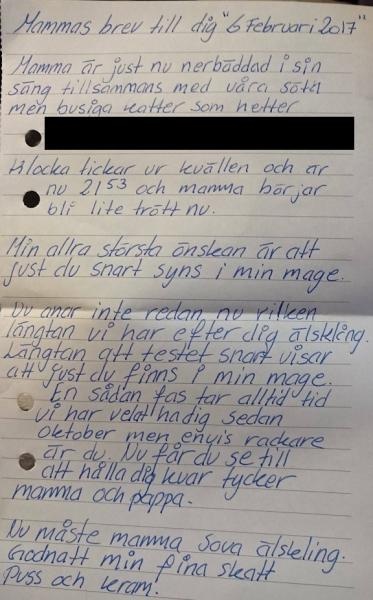 Mammas brev till dig "6 Februari 2017"
Mamma är just nu nerbäddad i sin
säng tillsammans med våra söta
men busiga katter som hetter
Klocka tickar ur kvällen och är
nu 21 53 och mamma börjar
bli lite trött nu.
Min allra största önskan är att
just du snart syns i min mage.
Du anar inte redan nu vilken
längtan vi har efter dig älskling.
Längtan att testet snart visar
att just du finns i min mage.
En sådan fas tar alltid tid
vi har velat ha dig sedan
oktober men envis rackare
är du. Nu får du se till
att hålla dig kvar tycker
mamma och pappa.
Nu måste mamma sova älskling.
Godnatt min fina skatt
Puss och kram.